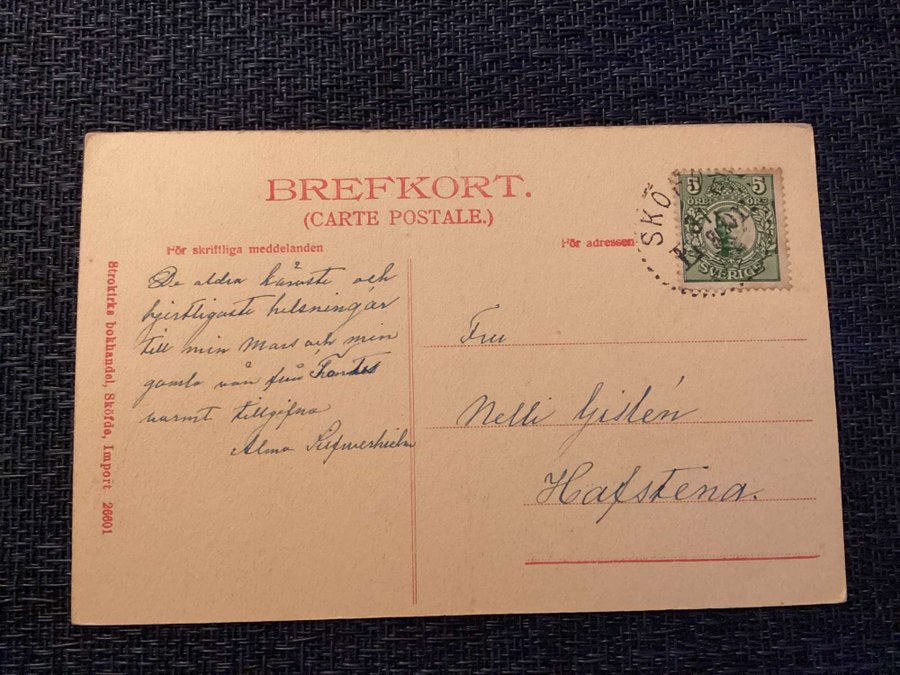 BREFKORT.
(CARTE POSTALE.)
För skriftliga meddelanden
För adressen
De aldra käraste och
hjertligaste helsningar
till min Mars och min
gamla vän från
varmt tillgifna
Alma Silfverhielm
Fru
Nelli Gislén
Hafstena.
5 5
ÖRE ÖRE
SVERIGE
SKÖ
Strokirks bokhandel, Sköfde, Import 26601